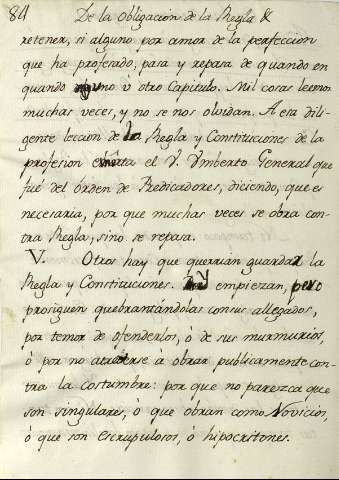 84 De la obligacion de la Regla &
retener, si alguno por amor de la perfeccion
que ha profesado, pasa y repasa de quando en
quando alguno ù otro Capitulo. Mil cosas leemos
muchas veces, y no se nos olvidan. A esa dili-
gente leccion de la Regla y Constituciones de la
profesion el V. Vmberto General que
fué del órden de Predicadores, diciendo, que es
necesaria, por que muchas veces se obra con-
tra Regla, sino se repasa.
V. Otros hay que querrian guardar la
Regla y Constituciones. y empiezan, pero
prosiguen quebrantándolas con sus allegados,
por temor de ofenderlos, ò de sus murmurios,
ò por no atreverse à obrar publicamente con-
tra la Costumbre: por que no parezca que
son singulares, ò que obran como Novicios,
ò que son escrupulosos, ò hipocritones.